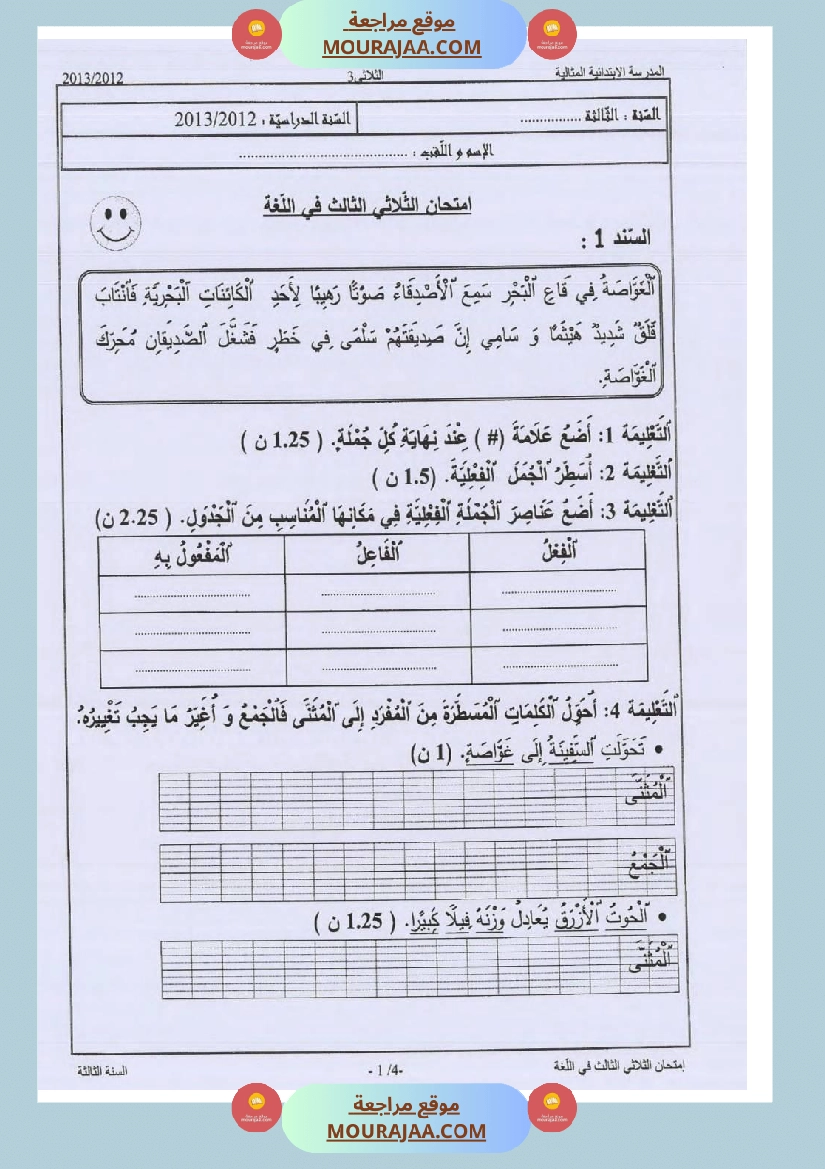 موقع مراجعة
MOURAJAA.COM
المدرسة الابتدائية المثالية الثلاثي3 2013/2012
السّنة : الثّالثة ................ السّنة الدراسيّة : 2013/2012
الإسم و اللّقب : ............................................
امتحان الثّلاثي الثالث في اللّغة
السّند 1 :
اَلْغَوَّاصَةُ فِي قَاعِ اَلْبَحْرِ سَمِعَ اَلْأَصْدِقَاءُ صَوْتًا رَهِيبًا لِأَحَدِ اَلْكَائِنَاتِ اَلْبَحْرِيَّةِ فَاَنْتَابَ
قَلَقٌ شَدِيدٌ هَيْثَمًا وَ سَامِي إِنَّ صَدِيقَتَهُمْ سَلْمَى فِي خَطَرٍ فَشَغَّلَ اَلصَّدِيقَانِ مُحَرِّكَ
اَلْغَوَّاصَةِ.
اَلتَّعْلِيمَة 1: أَضَعُ عَلَامَةَ (# ) عِنْدَ نِهَايَةِ كُلِّ جُمْلَةٍ. ( 1.25 ن )
اَلتَّعْلِيمَة 2: أُسَطِّرُ اَلْجُمَلَ اَلْفِعْلِيَّةَ. (1.5 ن )
اَلتَّعْلِيمَة 3: أَضَعُ عَنَاصِرَ اَلْجُمْلَةِ اَلْفِعْلِيَّةِ فِي مَكَانِهَا اَلْمُنَاسِبِ مِنَ اَلْجَدْوَلِ. ( 2.25 ن)
اَلْفِعْلُ اَلْفَاعِلُ اَلْمَفْعُولُ بِهِ
اَلتَّعْلِيمَة 4: أُحَوِّلُ اَلْكَلِمَاتِ اَلْمُسَطَّرَةَ مِنَ اَلْمُفْرَدِ إِلَى اَلْمُثَنَّى فَالْجَمْعُ وَ أُغَيِّرُ مَا يَجِبُ تَغْيِيرُهُ.
• تَحَوَّلَتِ اَلسَّفِينَةُ إِلَى غَوَّاصَةٍ. (1 ن)
اَلْمُثَنَّى
اَلْجَمْعُ
• اَلْحُوتُ اَلْأَزْرَقُ يُعَادِلُ وَزْنُهُ فِيلًا كَبِيرًا. ( 1.25 ن )
اَلْمُثَنَّى
إمتحان الثلاثي الثالث في اللّغة - 1 /4- السنة الثالثة
موقع مراجعة
MOURAJAA.COM